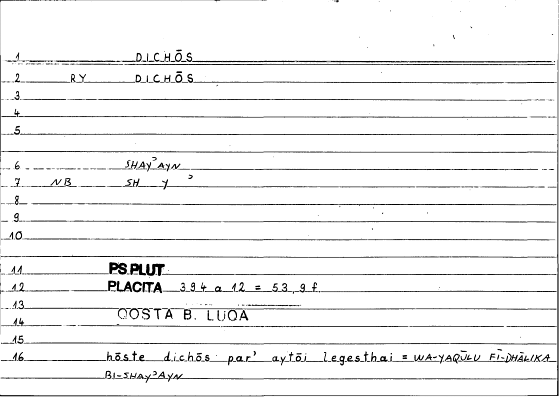 1 DICHŌS
2 RY DICHŌS
3
4
5
6 SHAYʾAYN
7 NB SH Y ʾ
8
9
10
11 PS.PLUT
12 PLACITA 394 a 12 = 53,9 f.
13
QOSTA B. LUQA
14
15
16 hōste dichōs par' aytōi legesthai = WA-YAQŪLU FĪ-DHĀLIKA
BI-SHAYʾAYN